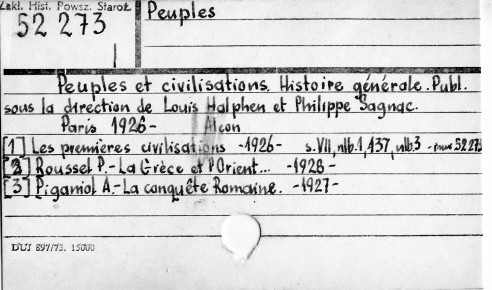 Zakł. Hist. Powsz. Staroż.
52 273
Peuples
Peuples et civilisations. Histoire générale. Publ.
sous la direction de Louis Halphen et Philippe Sagnac.
Paris 1926- Alcan
[1] Les premières civilisations -1926- s. VII, nlb.1, 437, nlb.3 - 52 273
[2] Roussel P. - La Grèce et l'Orient... -1928-
[3] Piganiol A. - La conquête Romaine. -1927-
DUJ 897/73. 15000